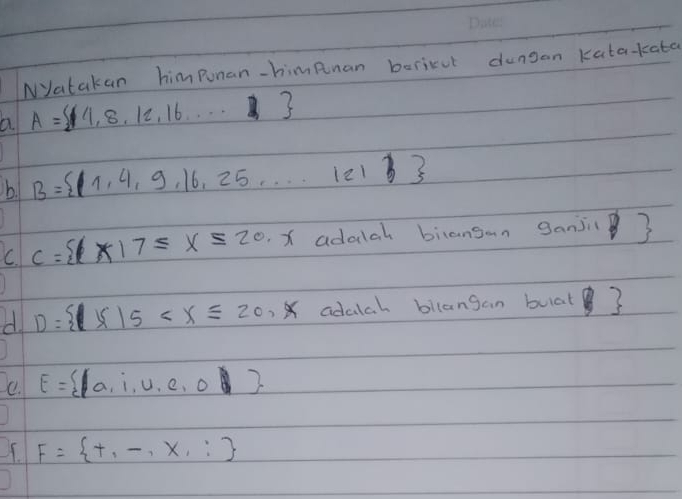 Date:
Nyatakan himpunan-himpunan berikut dengan kata-kata
a. A = {4, 8, 12, 16 .... }
b. B = {1, 4, 9, 16, 25, .... 121 }
c. C = { x | 7 ≤ x ≤ 20. x adalah bilangan ganjil }
d. D = { x | 5 < x ≤ 20, x adalah bilangan bulat }
e. E = { a, i, u, e, o }
f. F = {+, -, x, : }